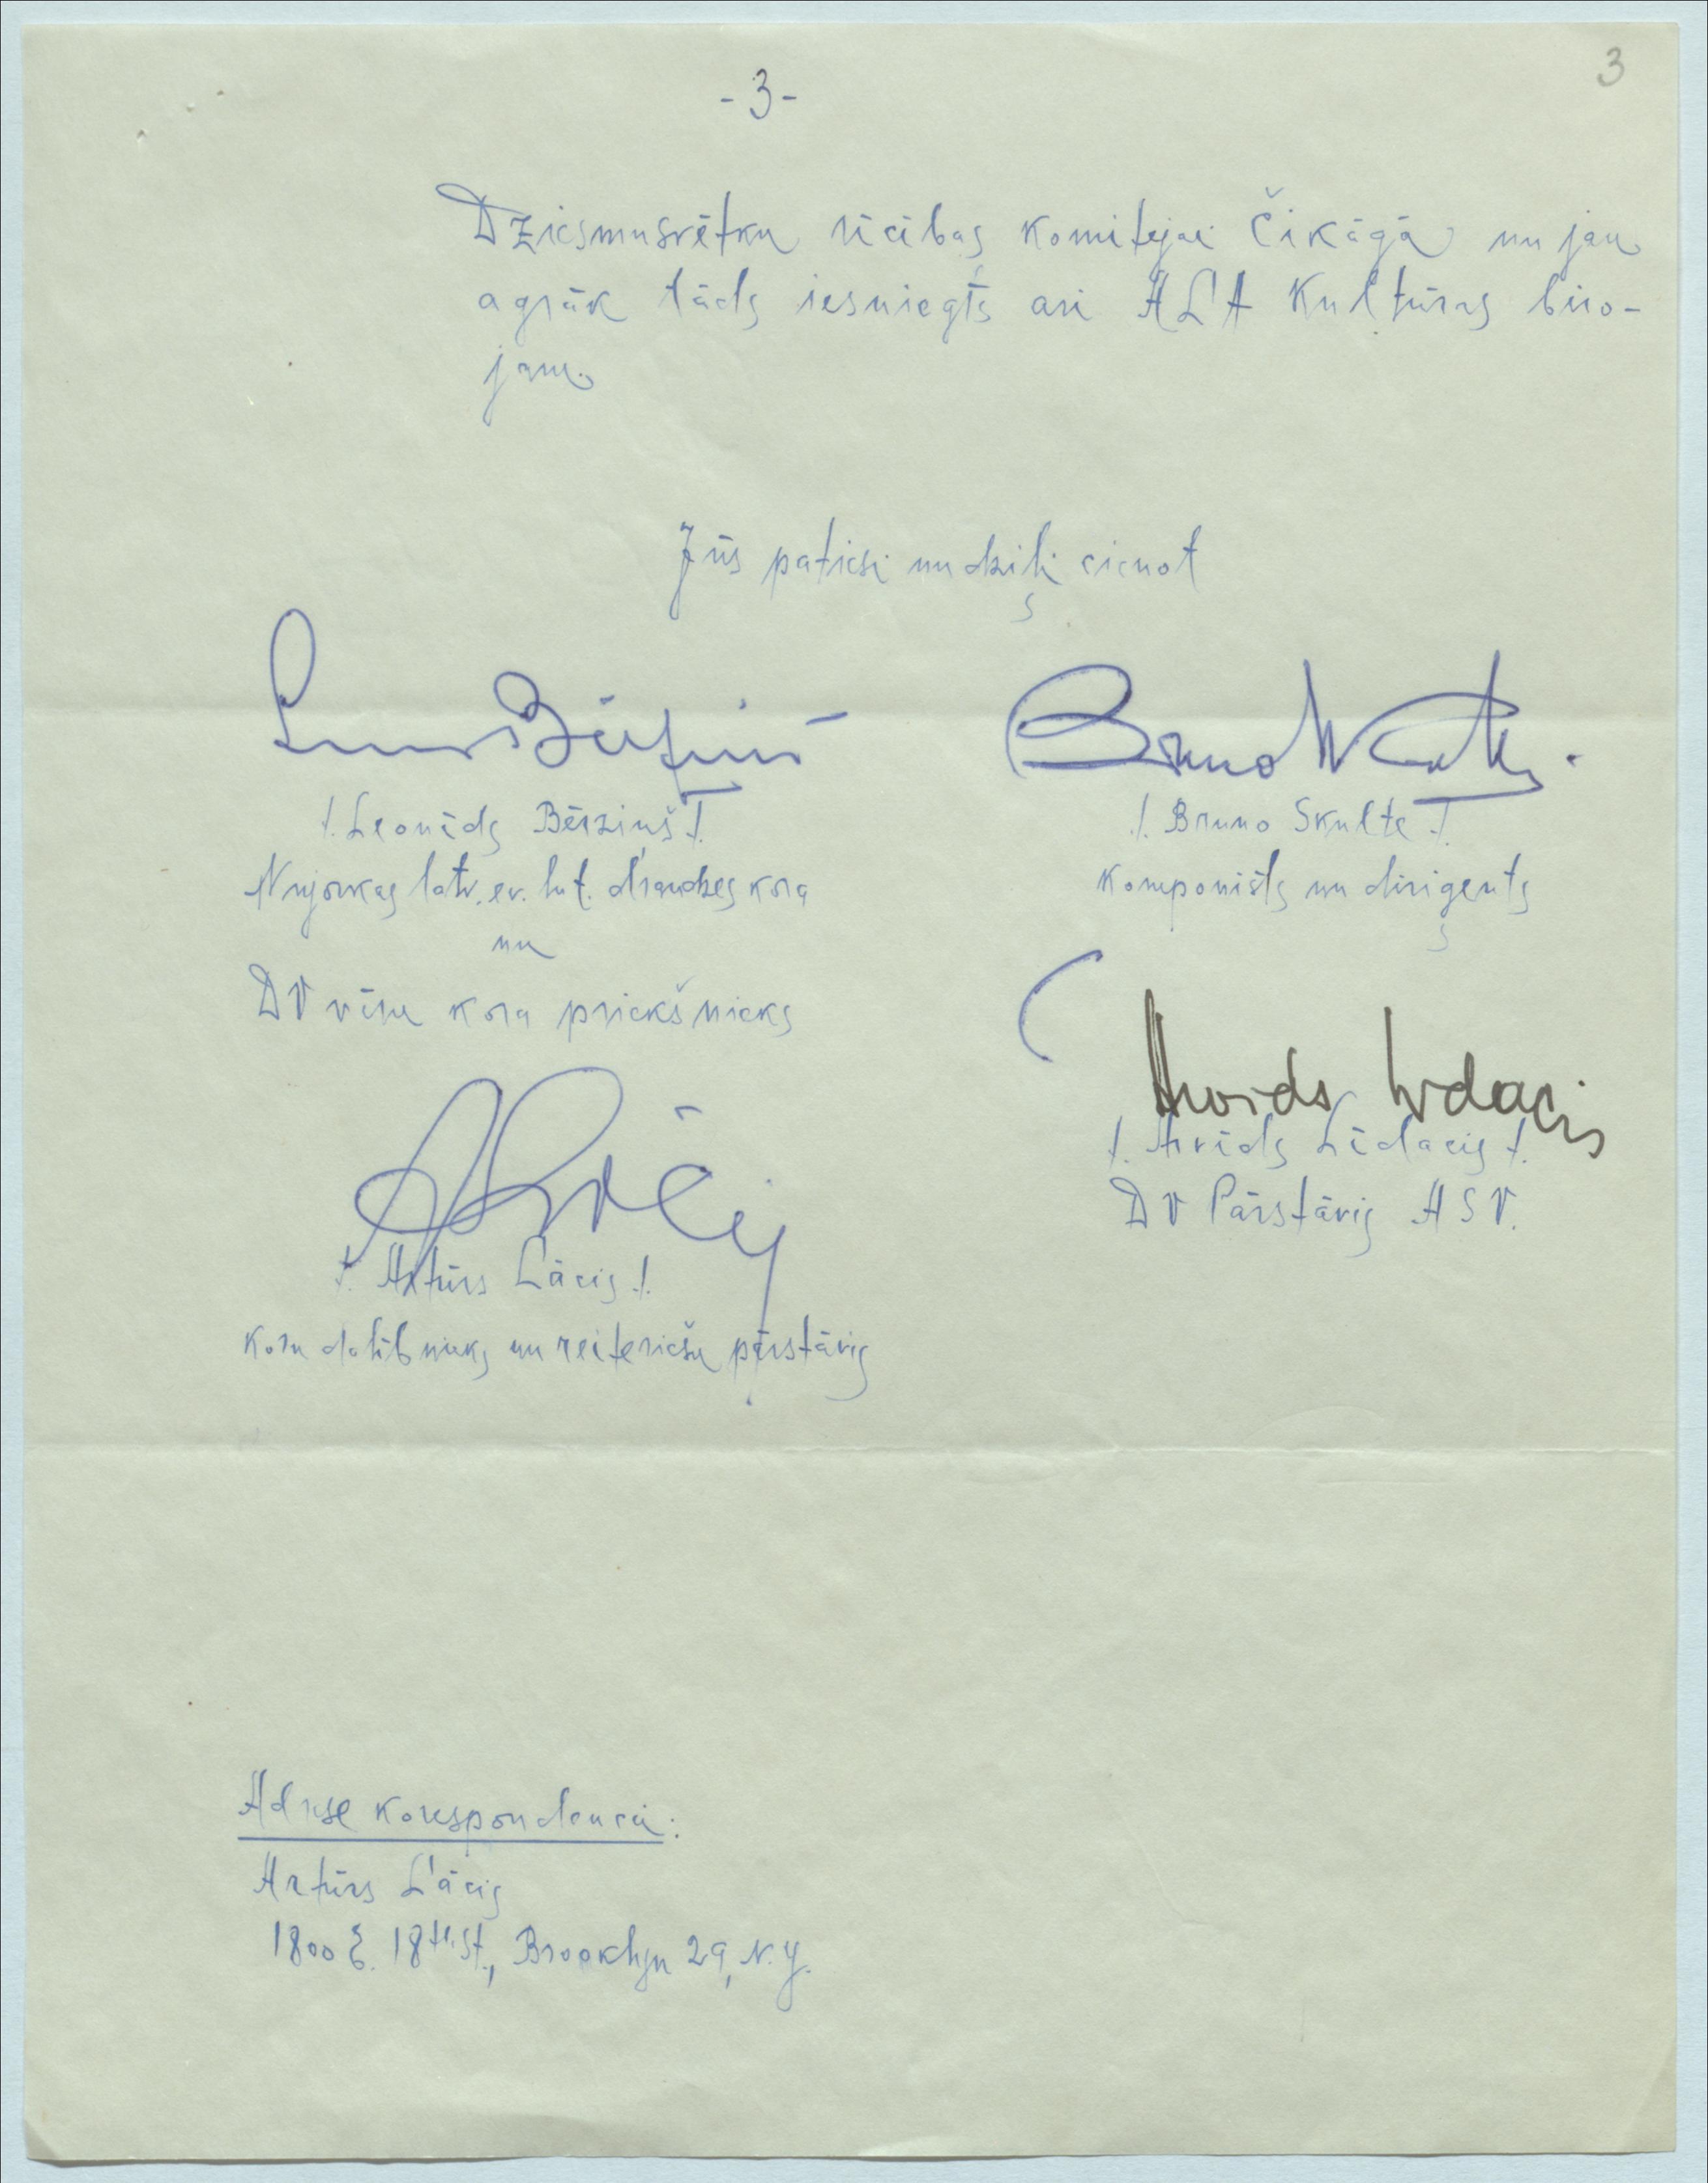 3
-3-
Dziesmusvētku rīcības komitejai Čikāgā un jau
agrāk tāds iesniegts arī ALA Kultūras biro-
jam.
Jūs patiesi un dziļi cienot
/. Leonīds Bērziņš /.
Ņujorkas latv. ev. lut. draudzes kora
un
DV vīru kora priekšnieks
/. Bruno Skulte /.
Komponists un diriģents
Arvids Lidacis
/. Arvīds Līdacis /.
DV Pārstāvis ASV.
/. Artūrs Lācis /.
Koru dalībnieks un reiteriešu pārstāvis
Adrese korespondencei:
Artūrs Lācis
1800 E. 18th St., Brooklyn 29, N.Y.